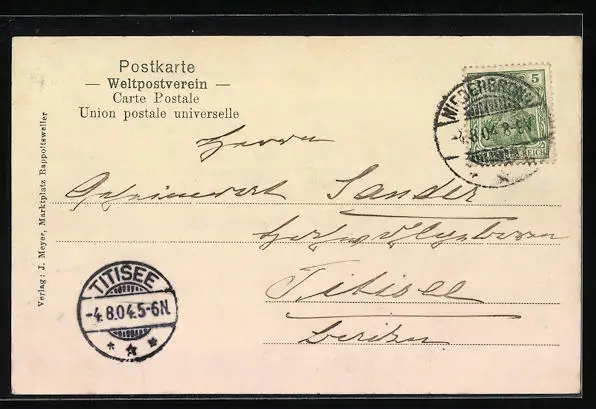 Postkarte
— Weltpostverein —
Carte Postale
Union postale universelle
5
NIEDERBRONN
-4.8.04. 8-9V.
REICH
Herrn
Geheimerat Sander
Titisee
Baden
TITISEE
-4.8.04.5-6N.
Verlag: J. Meyer, Marktplatz Rappoltsweiler